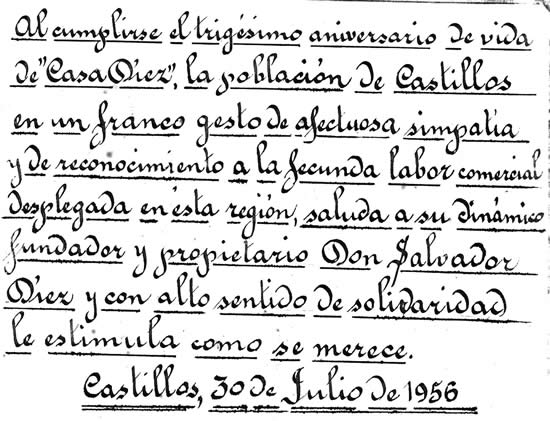 Al cumplirse el trigésimo aniversario de vida
de "Casa Díez", la población de Castillos
en un franco gesto de afectuosa simpatía
y de reconocimiento a la fecunda labor comercial
desplegada en ésta región, saluda a su dinámico
fundador y propietario Don Salvador
Díez y con alto sentido de solidaridad
le estimula como se merece.
Castillos, 30 de Julio de 1956